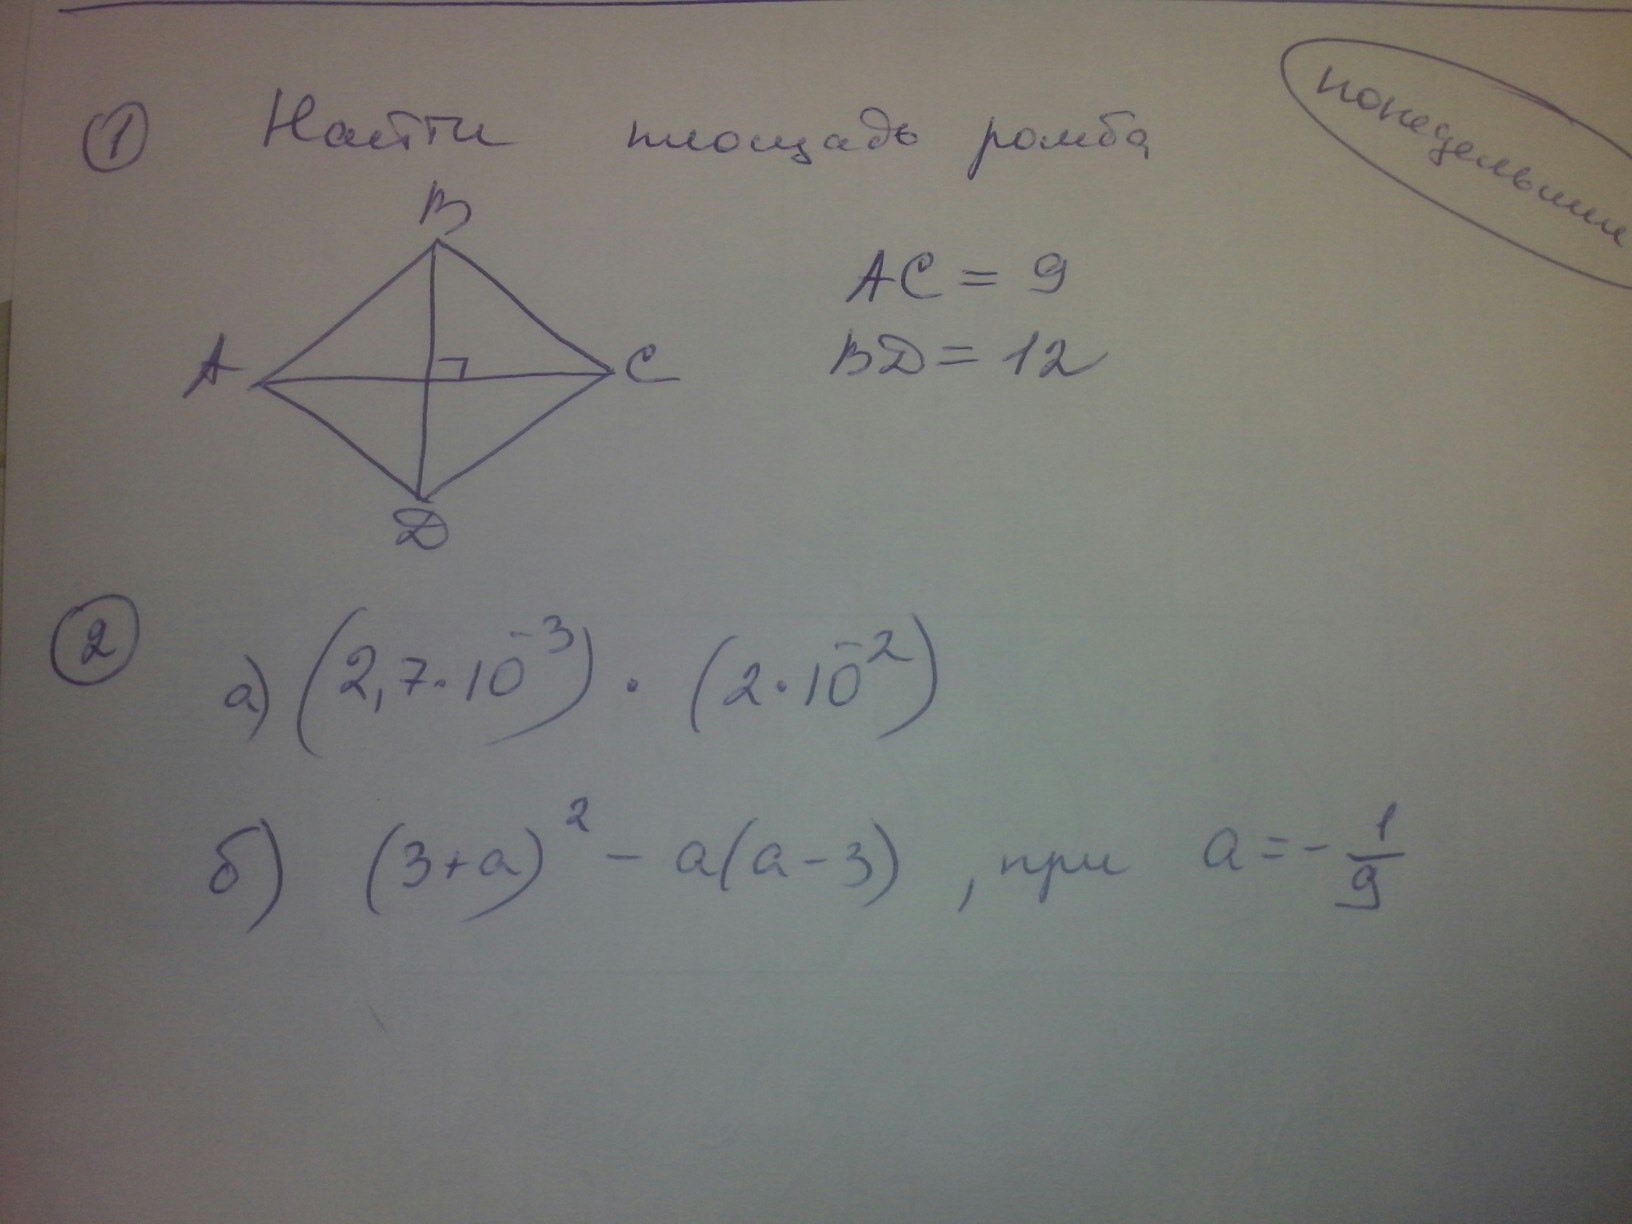 ① Найти площадь ромба
понедельник
B
A
C
D
AC = 9
BD = 12
② а) (2,7·10⁻³) · (2·10⁻²)
б) (3+a)² - a(a-3), при a = -1/9